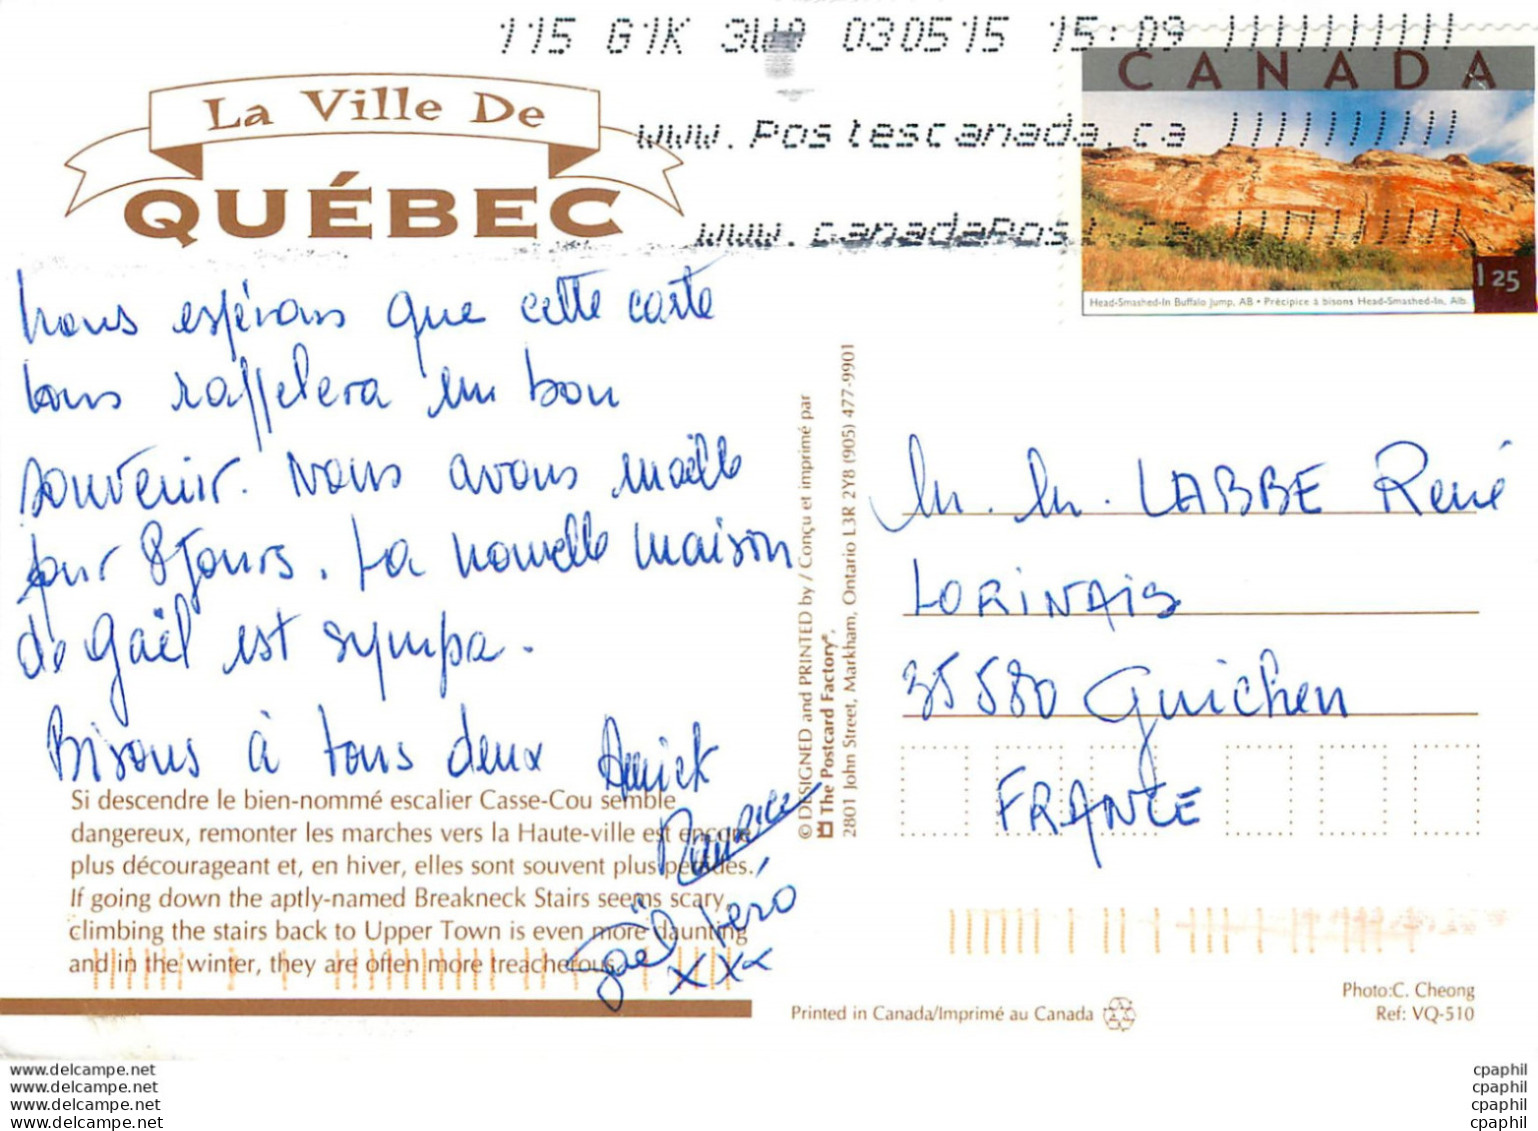 115 G1K 3W9 030515 15:09
www.postescanada.ca
www.canadapost.ca
CANADA
Head-Smashed-In Buffalo Jump, AB • Précipice à bisons Head-Smashed-In, Alb.
1 25
La Ville De
QUÉBEC
Nous espérons que cette carte
vous rappelera un bon
souvenir. Nous avons
pour 8 jours. La nouvelle maison
de Gaël est sympa.
Bisous à tous deux Annick
Maurice,
Gaël Véro
xxx
Si descendre le bien-nommé escalier Casse-Cou semble
dangereux, remonter les marches vers la Haute-ville est encore
plus décourageant et, en hiver, elles sont souvent plus perfides.
If going down the aptly-named Breakneck Stairs seems scary,
climbing the stairs back to Upper Town is even more daunting
and in the winter, they are often more treacherous.
© DESIGNED and PRINTED by / Conçu et imprimé par
The Postcard Factory®,
2801 John Street, Markham, Ontario L3R 2Y8 (905) 477-9901
M. M. LABBE René
LORINAIS
35580 Guichen
FRANCE
Printed in Canada/Imprimé au Canada
Photo:C. Cheong
Ref: VQ-510
www.delcampe.net
www.delcampe.net
www.delcampe.net
www.delcampe.net
cpaphil
cpaphil
cpaphil
cpaphil